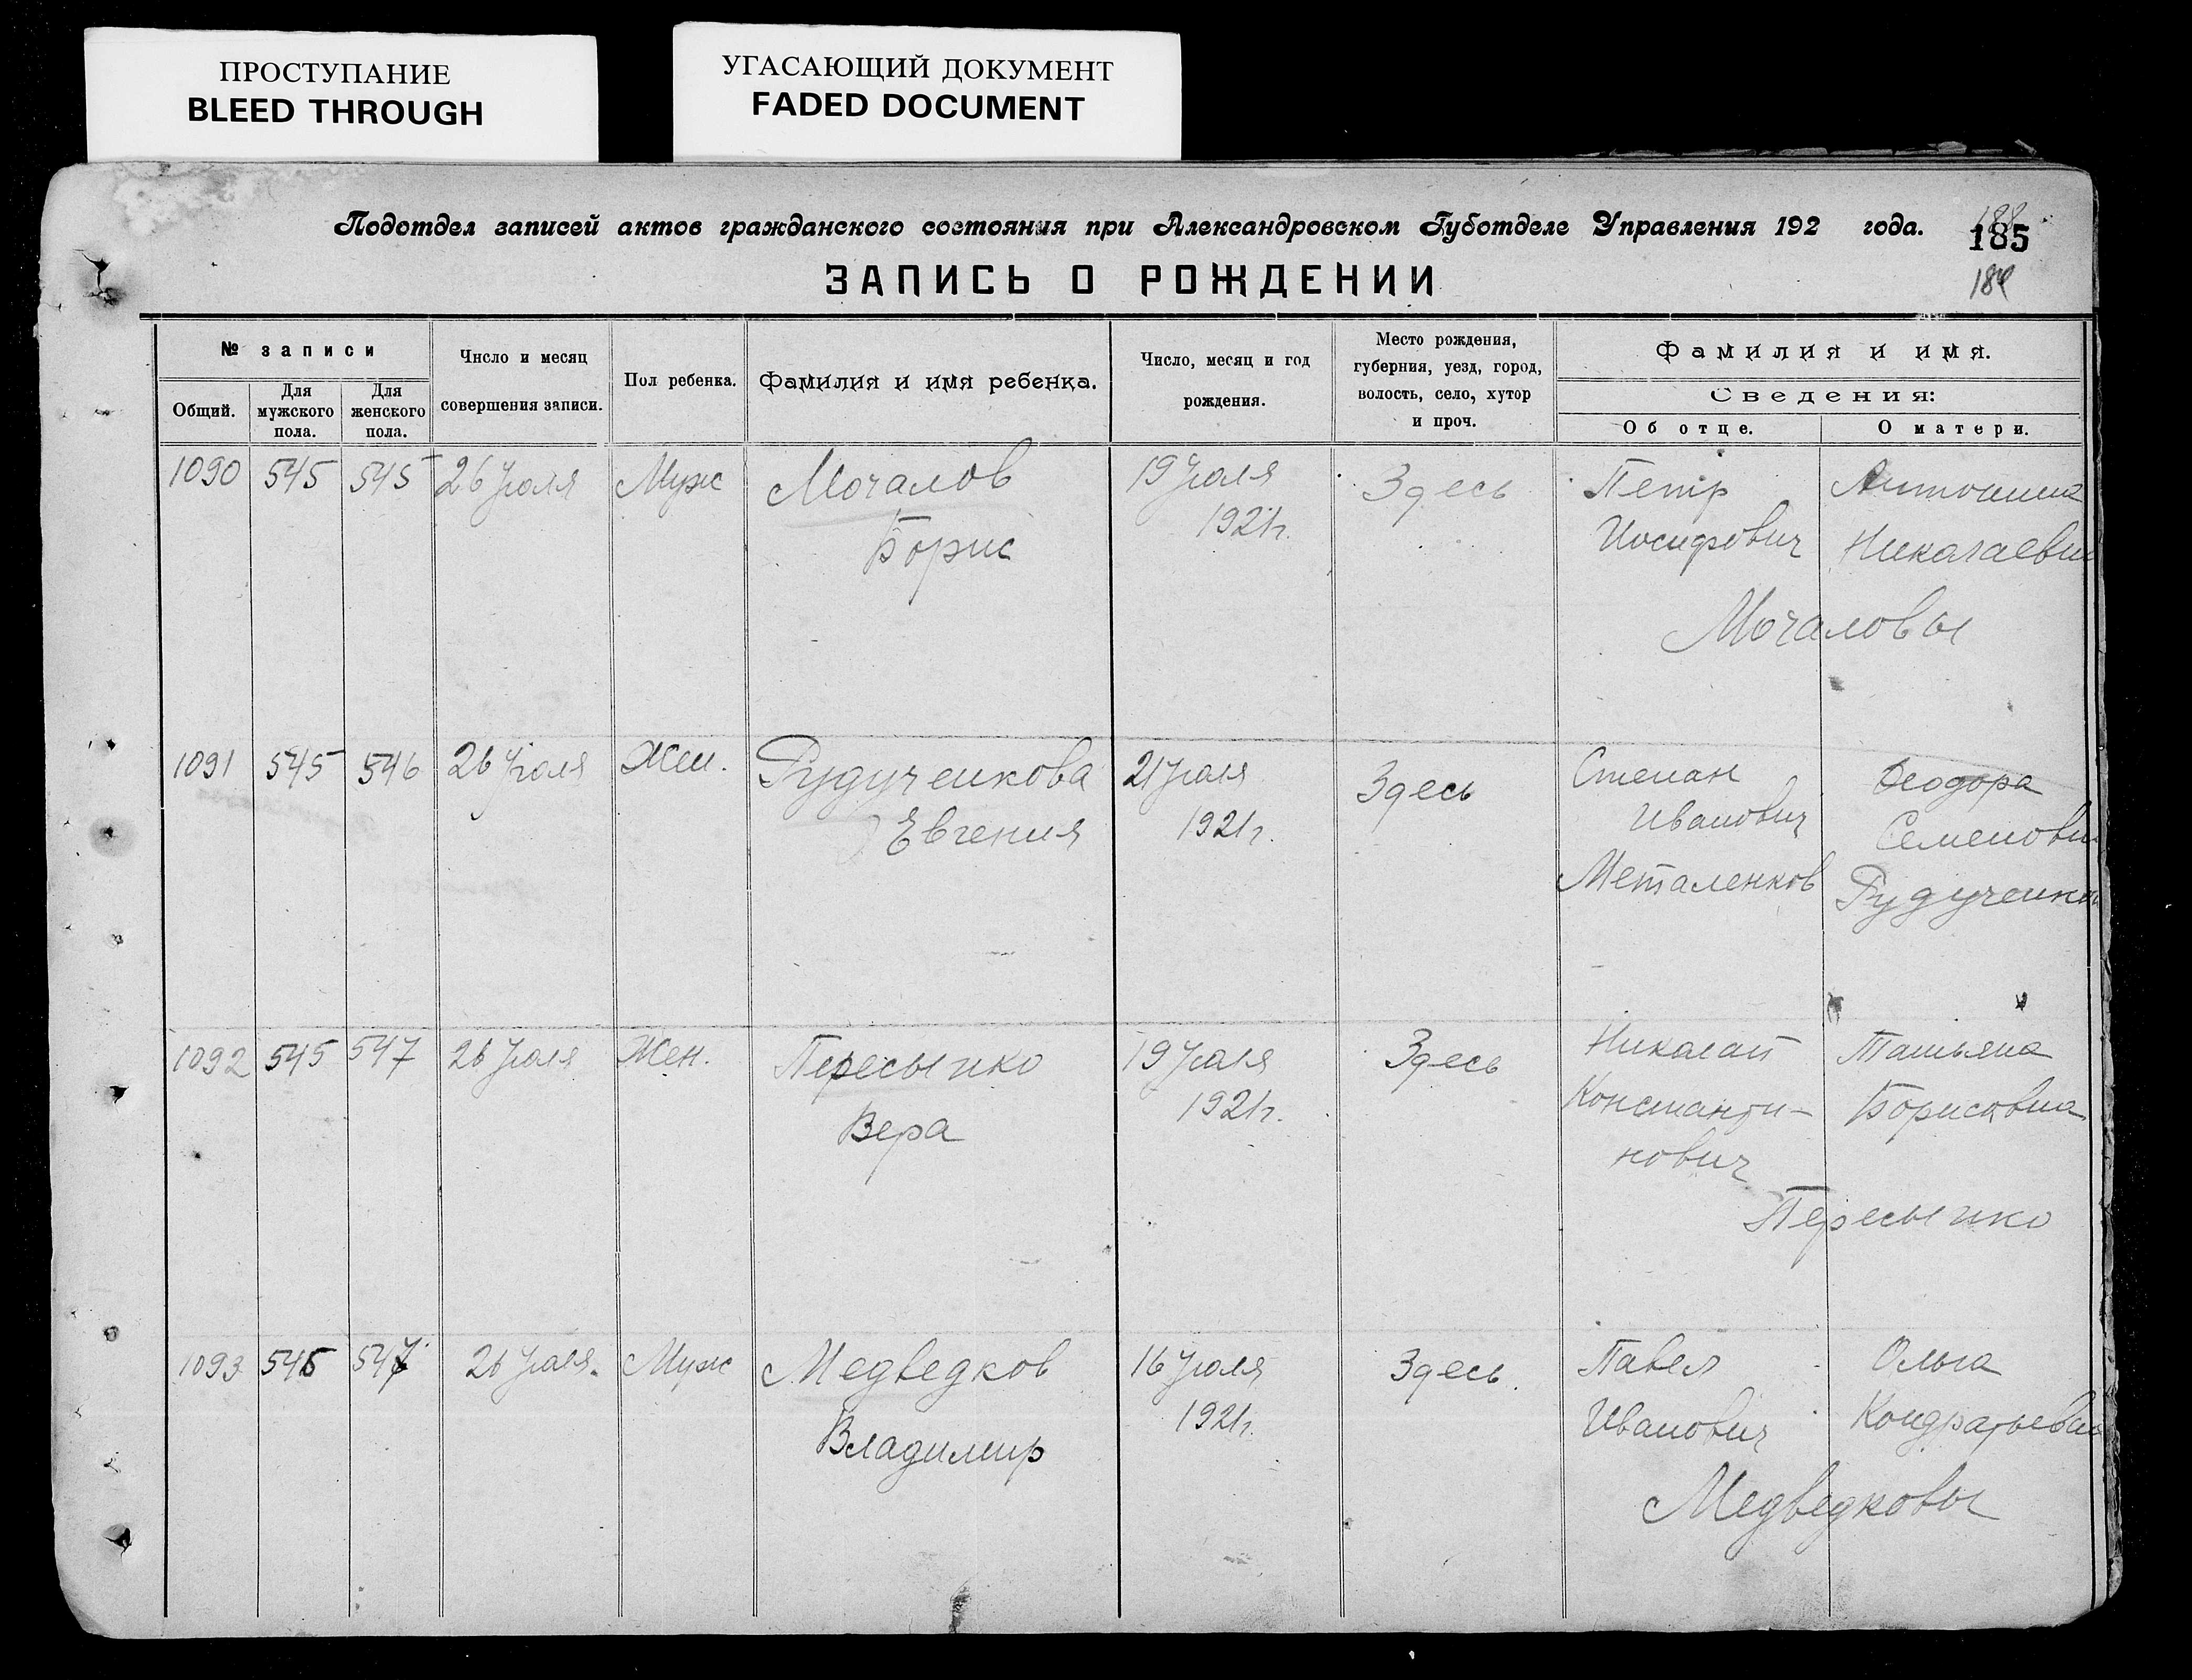 ПРОСТУПАНИЕ
BLEED THROUGH
УГАСАЮЩИЙ ДОКУМЕНТ
FADED DOCUMENT
Подотдел записей актов гражданского состояния при Александровском Губотделе Управления 192 года.
188
185
ЗАПИСЬ О РОЖДЕНИИ
№ записи
Общий.
Для мужского пола.
Для женского пола.
Число и месяц
совершения записи.
Пол ребенка.
Фамилия и имя ребенка.
Число, месяц и год
рождения.
Место рождения,
губерния, уезд, город,
волость, село, хутор
и проч.
Фамилия и имя.
Сведения:
Об отце.
О матери.
1090 545 545 26 Июля Муж Мочалов 19 Июля Здесь Петр Антонина
Борис 1921г. Иосифович Николаевн
Мочаловы
1091 545 546 26 Июля Жен. Рудученкова 21 Июля Здесь Степан Феодора
Евгения 1921г. Иванович Семеновн
Металенков Рудученко
1092 545 547 26 Июля Жен. Пересыпко 19 Июля Здесь Николай Татьяна
Вера 1921г. Константи- Борисовна
нович
Пересыпко
1093 546 547 26 Июля. Муж Медведков 16 Июля Здесь. Павел Ольга
Владимир 1921г. Иванович Кондратьевна
Медведковы